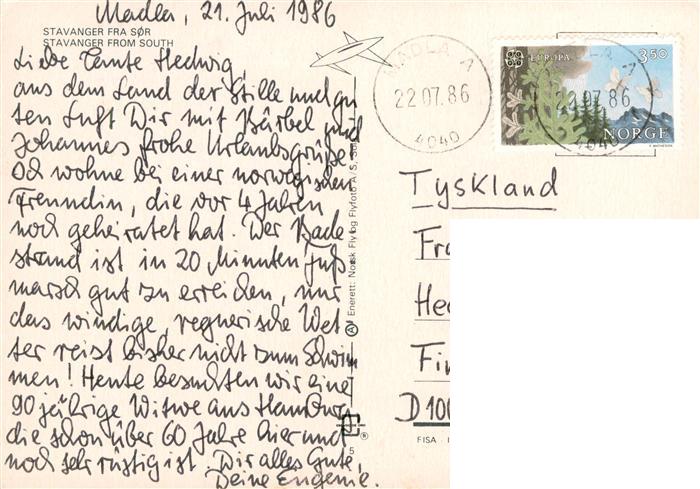 Madla, 21. Juli 1986
STAVANGER FRA SØR
STAVANGER FROM SOUTH
Liebe Tante Hedwig,
aus dem Land der Stille und gu
ten Luft Dir mit Bärbel und
Johannes frohe Urlaubsgrüße.
Ich wohne bei einer norwegischen
Freundin, die vor 4 Jahren
noch geheiratet hat. Der Bade
strand ist in 20 Minuten Fuß
marsch gut zu erreichen, nur
das windige, regnerische Wet-
ter reist bisher nicht zum Schwim
men! Heute besuchten wir eine
90 jährige Witwe aus Hamburg
die schon über 60 Jahre hier und
noch sehr rüstig ist. Dir alles Gute,
Deine Eugenie.
Enerett: Norsk Fly og Flyfoto A/S.
MADLA 1
22.07.86
4040
EUROPA
3,50
NORGE
22.07.86
4040
Tyskland
Fr
He
Fi
D 100
FISA
5